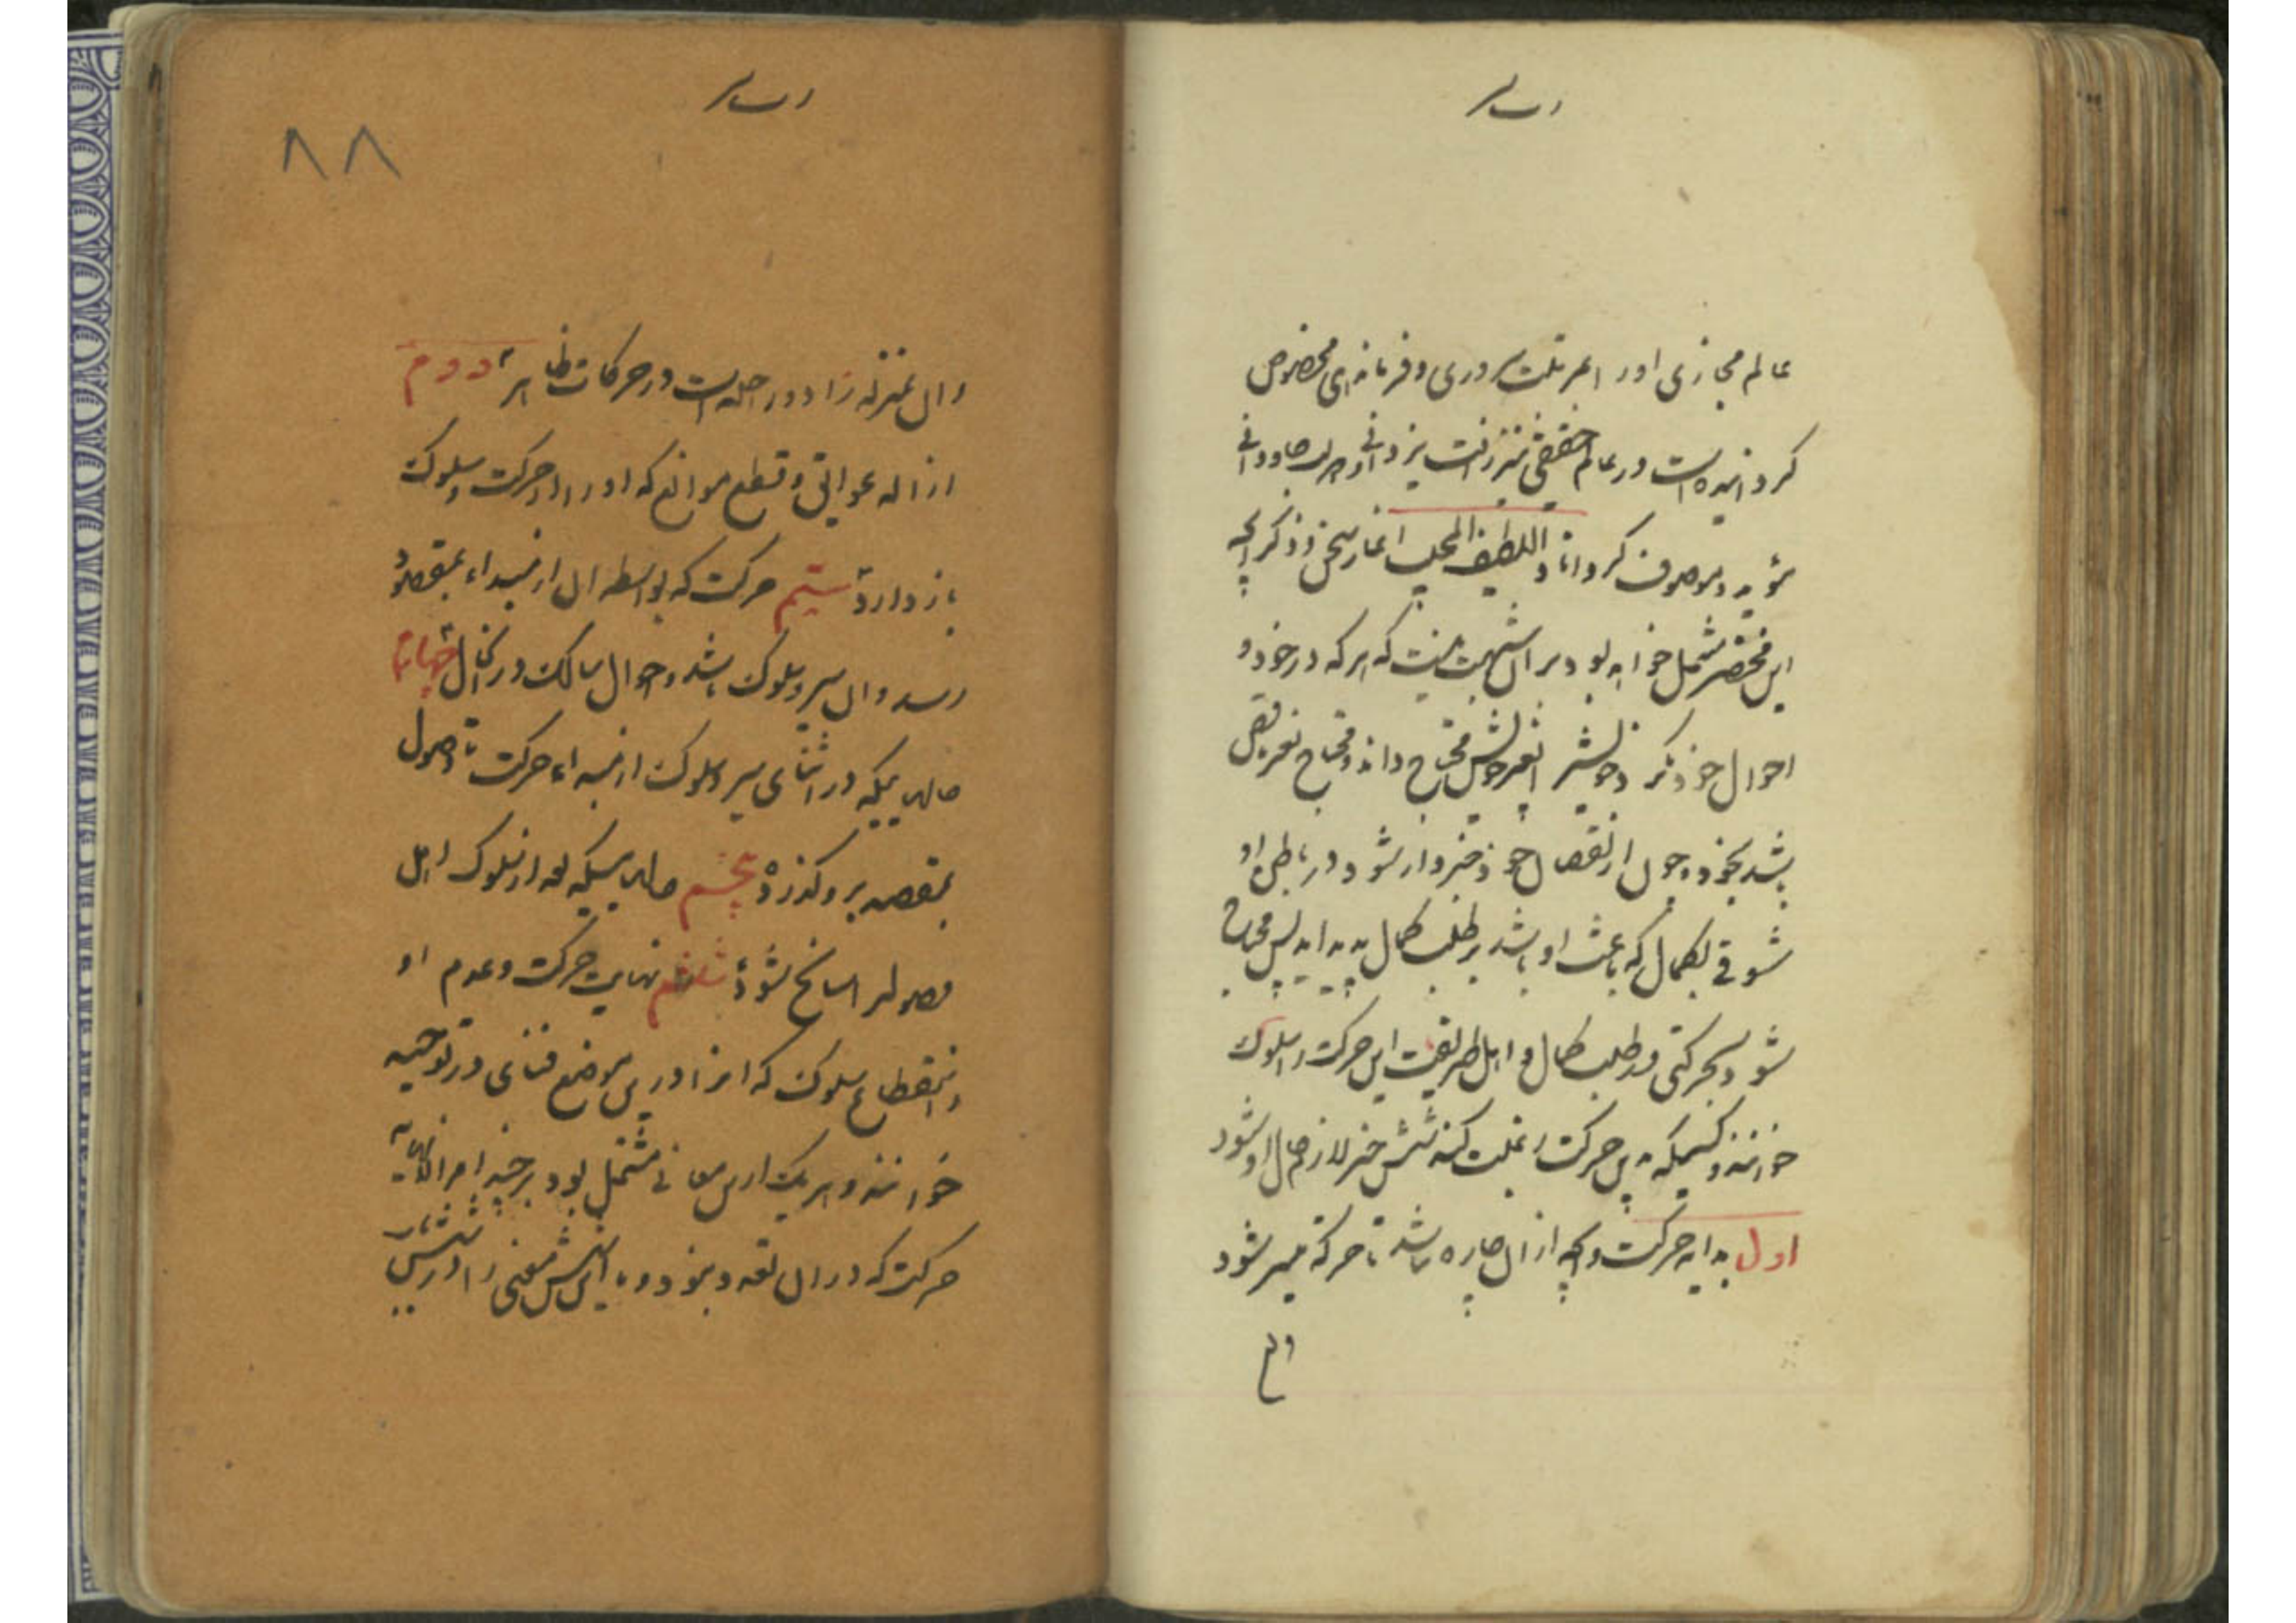 عالم مجازی او را بمرتبت سروری و فرمانروای مخصوص
گردانیده است در عالم حقیقی بمنزلت یزدانی و دولت جاودانی
مؤید و موصوف گرداناد و اللطیف المجیب اغاز سخن و ذکر انچه
این مختصر مشتمل خواهد بود بر آن شبهت نیست که هر که در خود و
احوال خود نکرد خویش را بغیر خویش محتاج داند و محتاج بغیر ناقص
باشد بخود و چون از نقصان خود خبردار شود در باطن او
شوقی بکمال که باعث او باشد بر طلب کمال پدید اید پس محتاج
شود بحرکتی در طلب کمال و اهل طریقت این حرکت را سلوک
خوانند و کسیکه باین حرکت رغبت کند شش چیز لازم حال او شود
اول بدایه حرکت و انچه از ان چاره نباشد تا حرکة میسر شود
وان بمنزله زاد و راحله است در حرکات ظاهر دوم
ازاله عوایق و قطع موانع که او را از حرکت و سلوک
بازدارد سیم حرکت که بواسطه ان از مبداء بمقصد
رسد و ان سیر و سلوک باشد و احوال سالک در ان حال چهارم
حالهاییکه در اثنای سیر و سلوک از مبداء حرکت تا وصول
بمقصد برو کذرد پنجم حالهاییکه بعد از سلوک اهل
وصول را سانح شود ششم نهایت حرکت و عدم او
و انقطاع سلوک که انرا در این موضع فنای در توحید
خوانند و هر یک ازین معانی مشتمل بود بر چند امر الا نهایة
حرکت که در ان تعدد نبود و ما این شش معنی را در شش